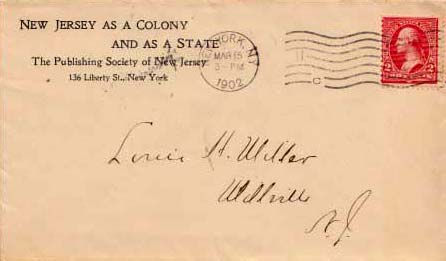 NEW JERSEY AS A COLONY
AND AS A STATE
The Publishing Society of New Jersey
136 Liberty St., New York
YORK, N.Y.
MAR 15
3 - PM
1902
C
2 2
Louis H. Miller
Millville
N. J.